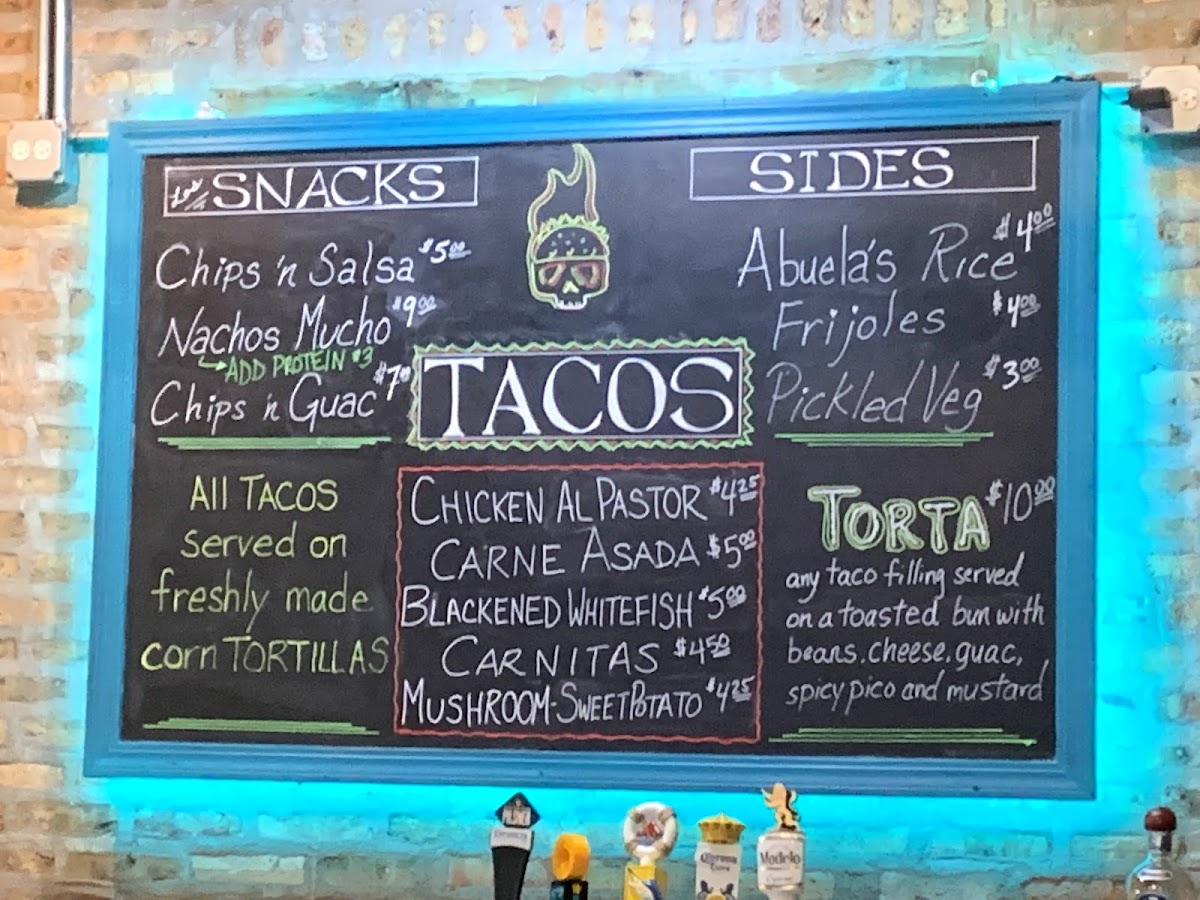 Los SNACKS
Chips 'n Salsa $5.00
Nachos Mucho $9.00
ADD PROTEIN $3
Chips 'n Guac $7.00
All TACOS
served on
freshly made
corn TORTILLAS
TACOS
CHICKEN AL PASTOR $4.25
CARNE ASADA $5.00
BLACKENED WHITEFISH $5.00
CARNITAS $4.50
MUSHROOM-SWEET POTATO $4.25
SIDES
Abuela's Rice $4.00
Frijoles $4.00
Pickled Veg $3.00
TORTA $10.00
any taco filling served
on a toasted bun with
beans, cheese, guac,
spicy pico and mustard
PILSNER
Modelo